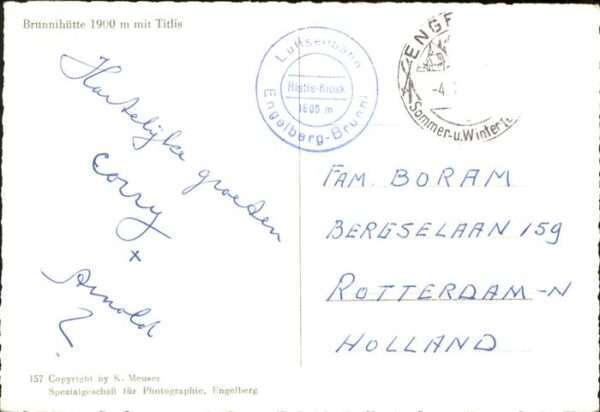 Brunnihütte 1900 m mit Titlis
Luftseilbahn
Ristis-Kiosk
1600 m
Engelberg-Brunni
ENG
-4.
Sommer-u.Winter
Hartelijke groeten
Corry
x
Arnold
FAM. BORAM
BERGSELAAN 159
ROTTERDAM-N
HOLLAND
157 Copyright by K. Meuser
Spezialgeschäft für Photographie, Engelberg